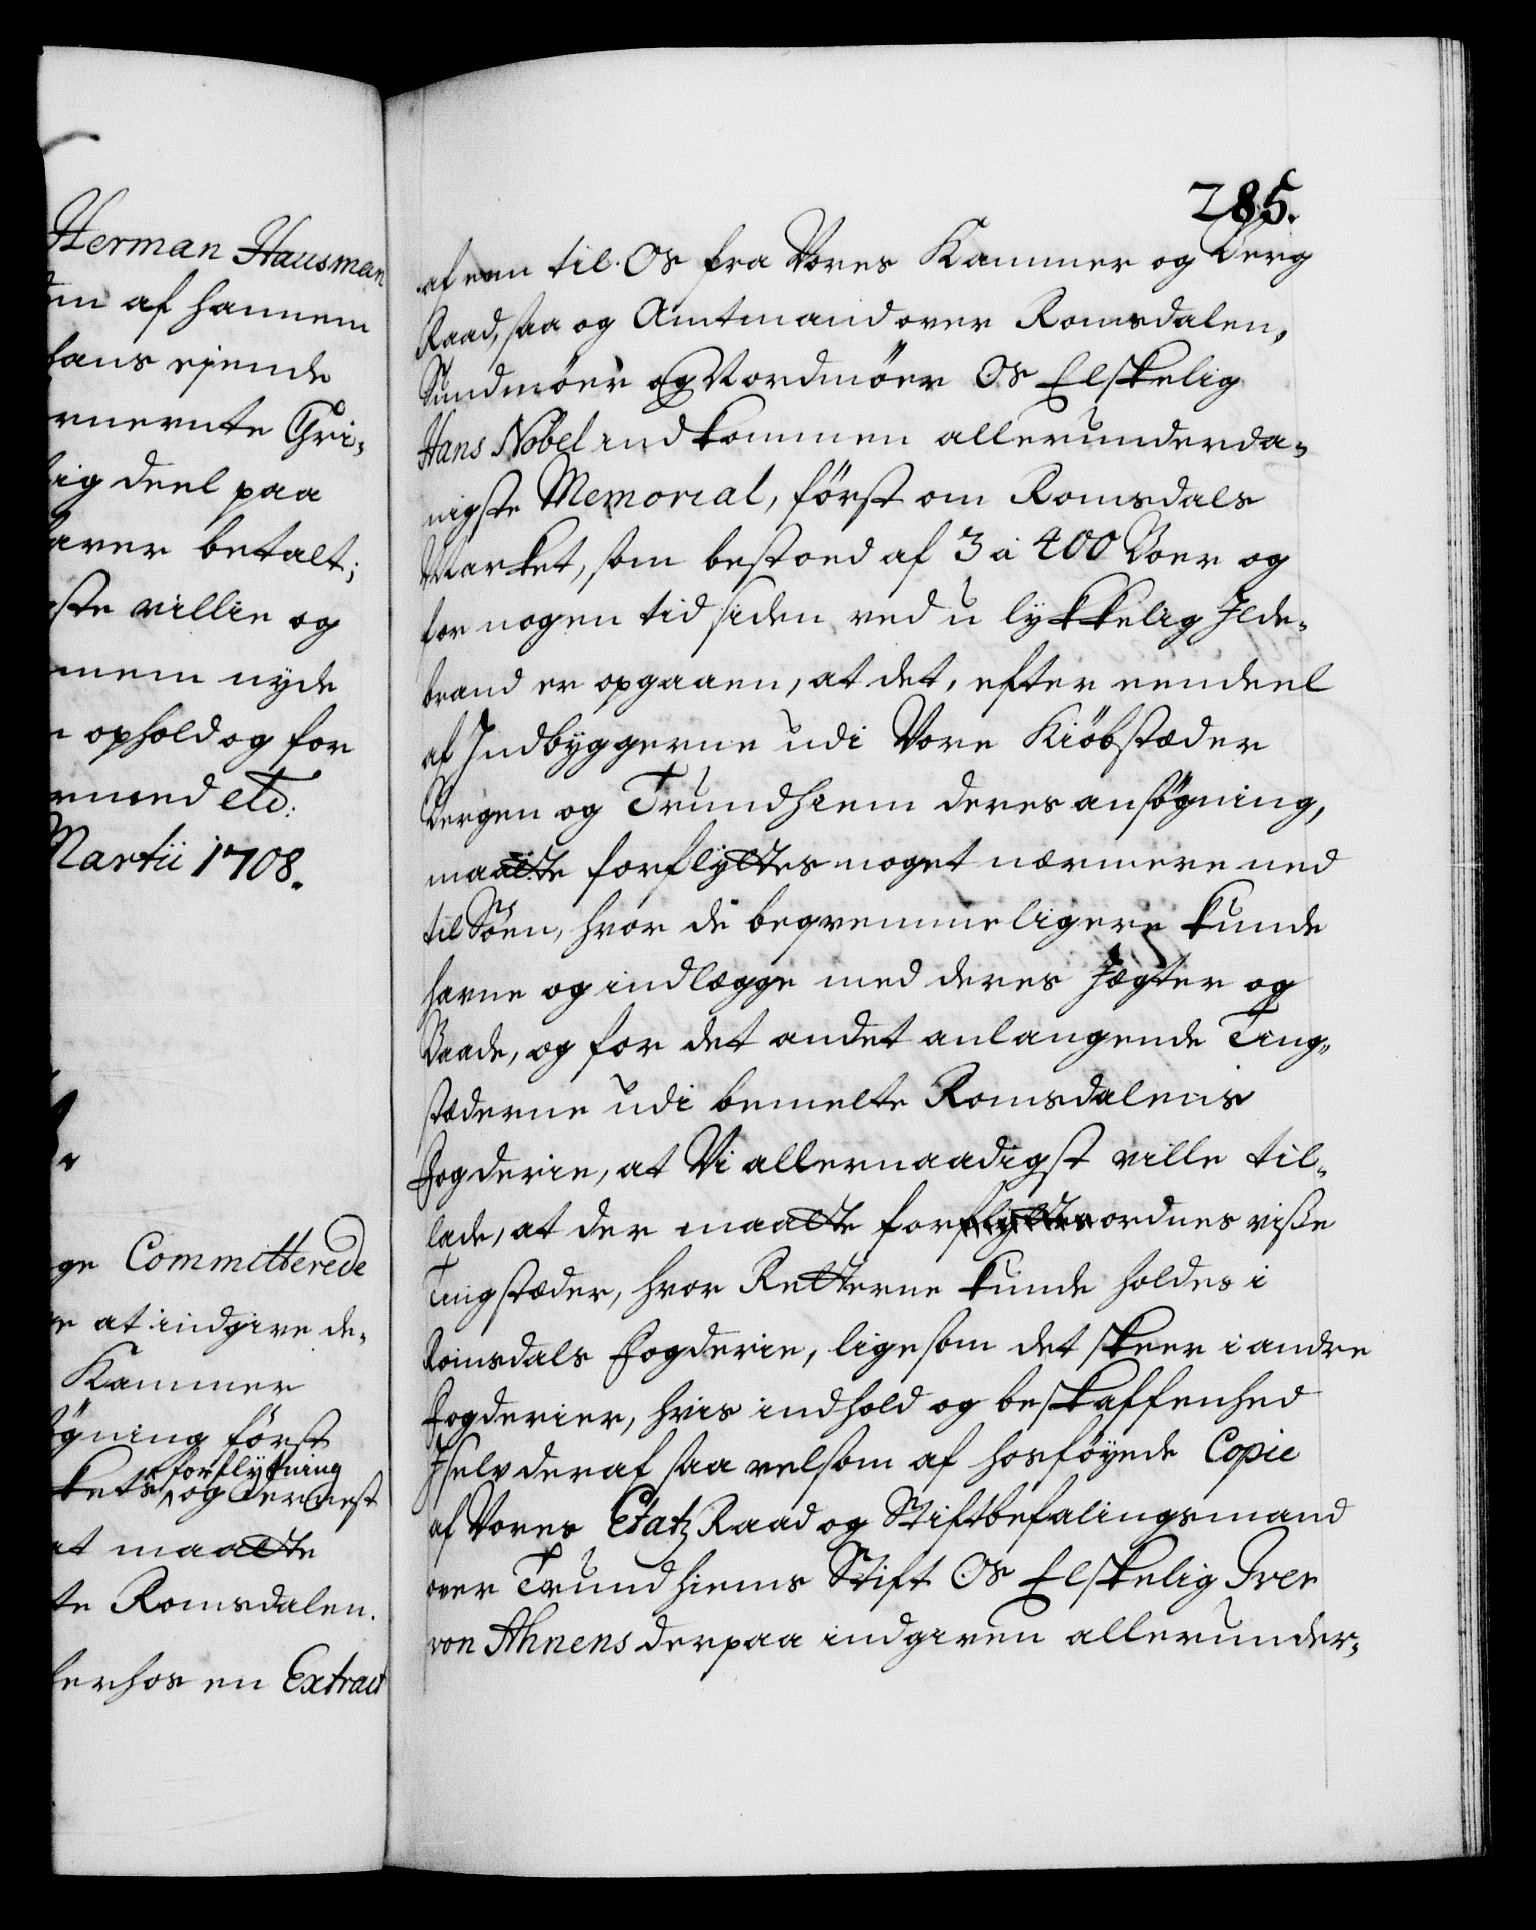 Herman Hausman
af hannem
hans eyende
ermeente Gri-
lig deel paa
haver betalt;
ste villie og
nyde
ophold og for
etc:
Martii 1708.
Committerede
at indgive de-
Kammer
øgning først
forflytning
kets og dernest
at maatte
te Romsdalen.
herhos en Extract
285.
af een til Os fra Vores Kammer og Berg
Raad, saa og Amtmand over Romsdalen,
Sundmöer og Nordmöer Os Elskelig
Hans Nobel indkommen allerunderda-
nigste Memorial, först om Romsdals
Market, som bestoed af 3 à 400 Boer og
for nogen tid siden ved u lykkelig Ilde-
brand er opgaaen, at det, efter eendeel
af Indbyggerne udi Vore Kiöbstæder
Bergen og Trundhiem deres ansögning,
maatte forflyttes noget nærmere ned
til Söen, hvor de beqvemmeligere kunde
havne og indlægge med deres Jægter og
Baade, og for det andet anlangende Ting-
stæderne udi bemelte Romsdalens
Fogderie, at Vi allernaadigst ville til-
lade, at der maatte forflyttes ordnes visse
Tingstæder, hvor Retterne kunde holdes i
Romsdals Fogderie, ligesom det skeer i andre
Fogderier, hvis indhold og beskaffenhed
I selv deraf saa velsom af hosföyede Copie
af Vores Etatz Raad og Stiftbefalingsmand
over Trundhiems Stift Os Elskelig Iver
von Ahnens derpaa indgiven allerunder-